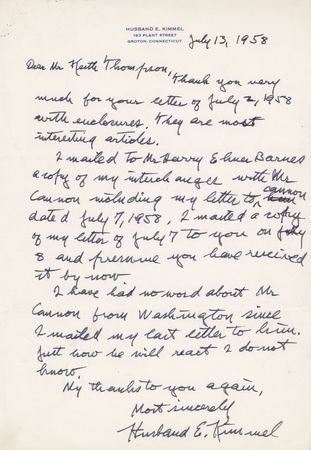 HUSBAND E. KIMMEL
183 PLANT STREET
GROTON, CONNECTICUT
July 13, 1958
Dear Mr Keith Thompson,
Thank you very
much for your letter of July 2, 1958
with enclosures. They are most
interesting articles.
I mailed to Mr Harry Elmer Barnes
a copy of my interchanges with Mr
Cannon including my letter to Cannon
dated July 7, 1958. I mailed a copy
of my letter of July 7 to you on July
8 and presume you have received
it by now
I have had no word about Mr
Cannon from Washington since
I mailed my last letter to him.
Just how he will react I do not
know.
My thanks to you again,
Most sincerely
Husband E. Kimmel